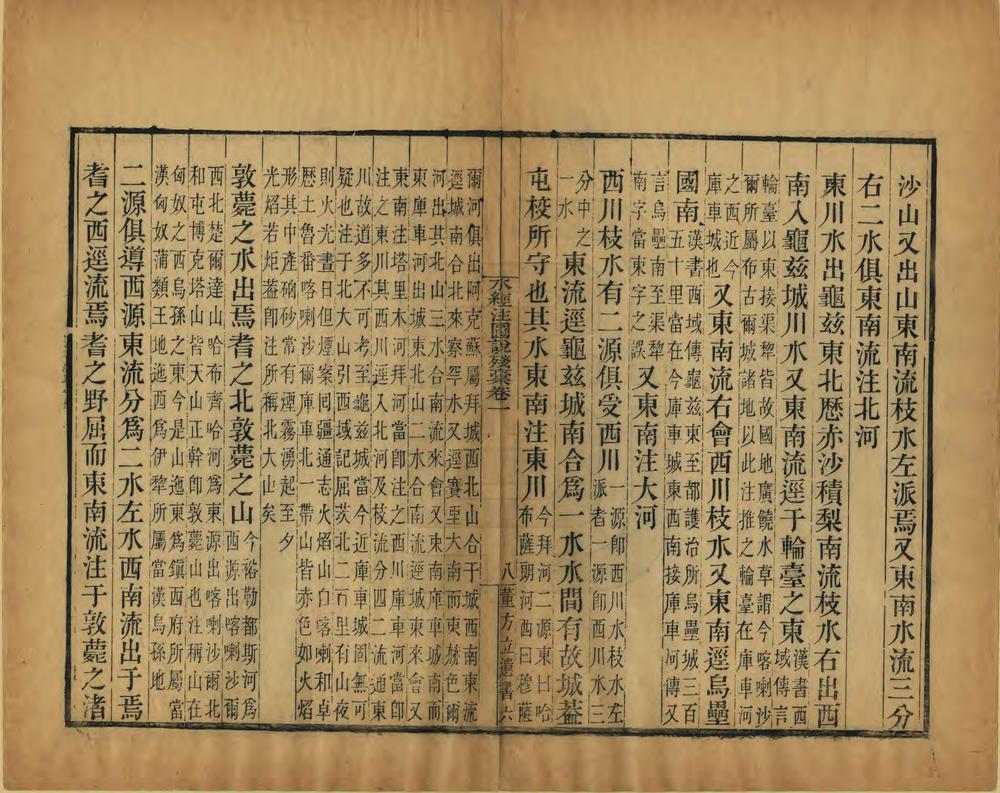 沙山又出山東南流枝水左派焉又東南水流三分
右二水俱東南流注北河
東川水出龜茲東北歷赤沙積梨南流枝水右出西
南入龜茲城川水又東南流逕于輪臺之東漢書西域傳言
輪臺以東接渠犂皆故國地廣饒水草謂今喀喇沙
爾所屬布古爾城諸地以此注推之輪臺在庫車河
之西近今
庫車城也又東南流右會西川枝水又東南逕烏壘
國南漢書西域傳龜茲東至都護治所烏壘城三百
五十里當在今庫車城東西南接庫車河傳又
言烏壘南至渠犂
南字當東字之誤又東南注大河
西川枝水有二源俱受西川一源卽西川水枝水左
派者一源卽西川水三
分中之
一水東流逕龜茲城南合爲一水水間有故城葢
屯校所守也其水東南注東川今拜河二源東曰哈
布薩朗河西曰穆薩
水經注圖說殘稾卷一
八
董方立遺書六
爾河俱出阿克蘇屬拜城西北山合于城西南東流
逕城南合北來察罕水又逕賽里木南而東赫色爾
河出其北山三水合南流來會又東南庫車城南而
東庫車河出城東北山二水合南流逕城東來會又
東南注塔里木河拜河當卽注之西川庫車河當卽
注之東川其西川逕入北河及枝流分四二流通東
川故道多不可考至龜茲城當今近庫車城固無可
疑也注于北大山引西域記屈茨北二百里有山夜
則火光晝日但煙案囘疆通志火焰山白喀喇和卓
歷土魯番喀喇沙爾庫車北一帶山皆赤色如火焰
形其中產硇砂常有煙霧湧起至夕
光焰若炬葢卽注所稱北大山矣
敦薨之水出焉耆之北敦薨之山今裕勒都斯河爲
西源出喀喇沙爾
西北楚達山哈布齊哈河爲東源出喀喇沙爾北
和屯博克塔山皆天山正幹卽敦薨山也注稱山在
匈奴之西烏孫之東今是山迤東爲鎭西府所屬當
漢匈奴蒲類王地迤西爲伊犂所屬當漢烏孫地
二源俱導西源東流分爲二水左水西南流出于焉
耆之西逕流焉耆之野屈而東南流注于敦薨之渚